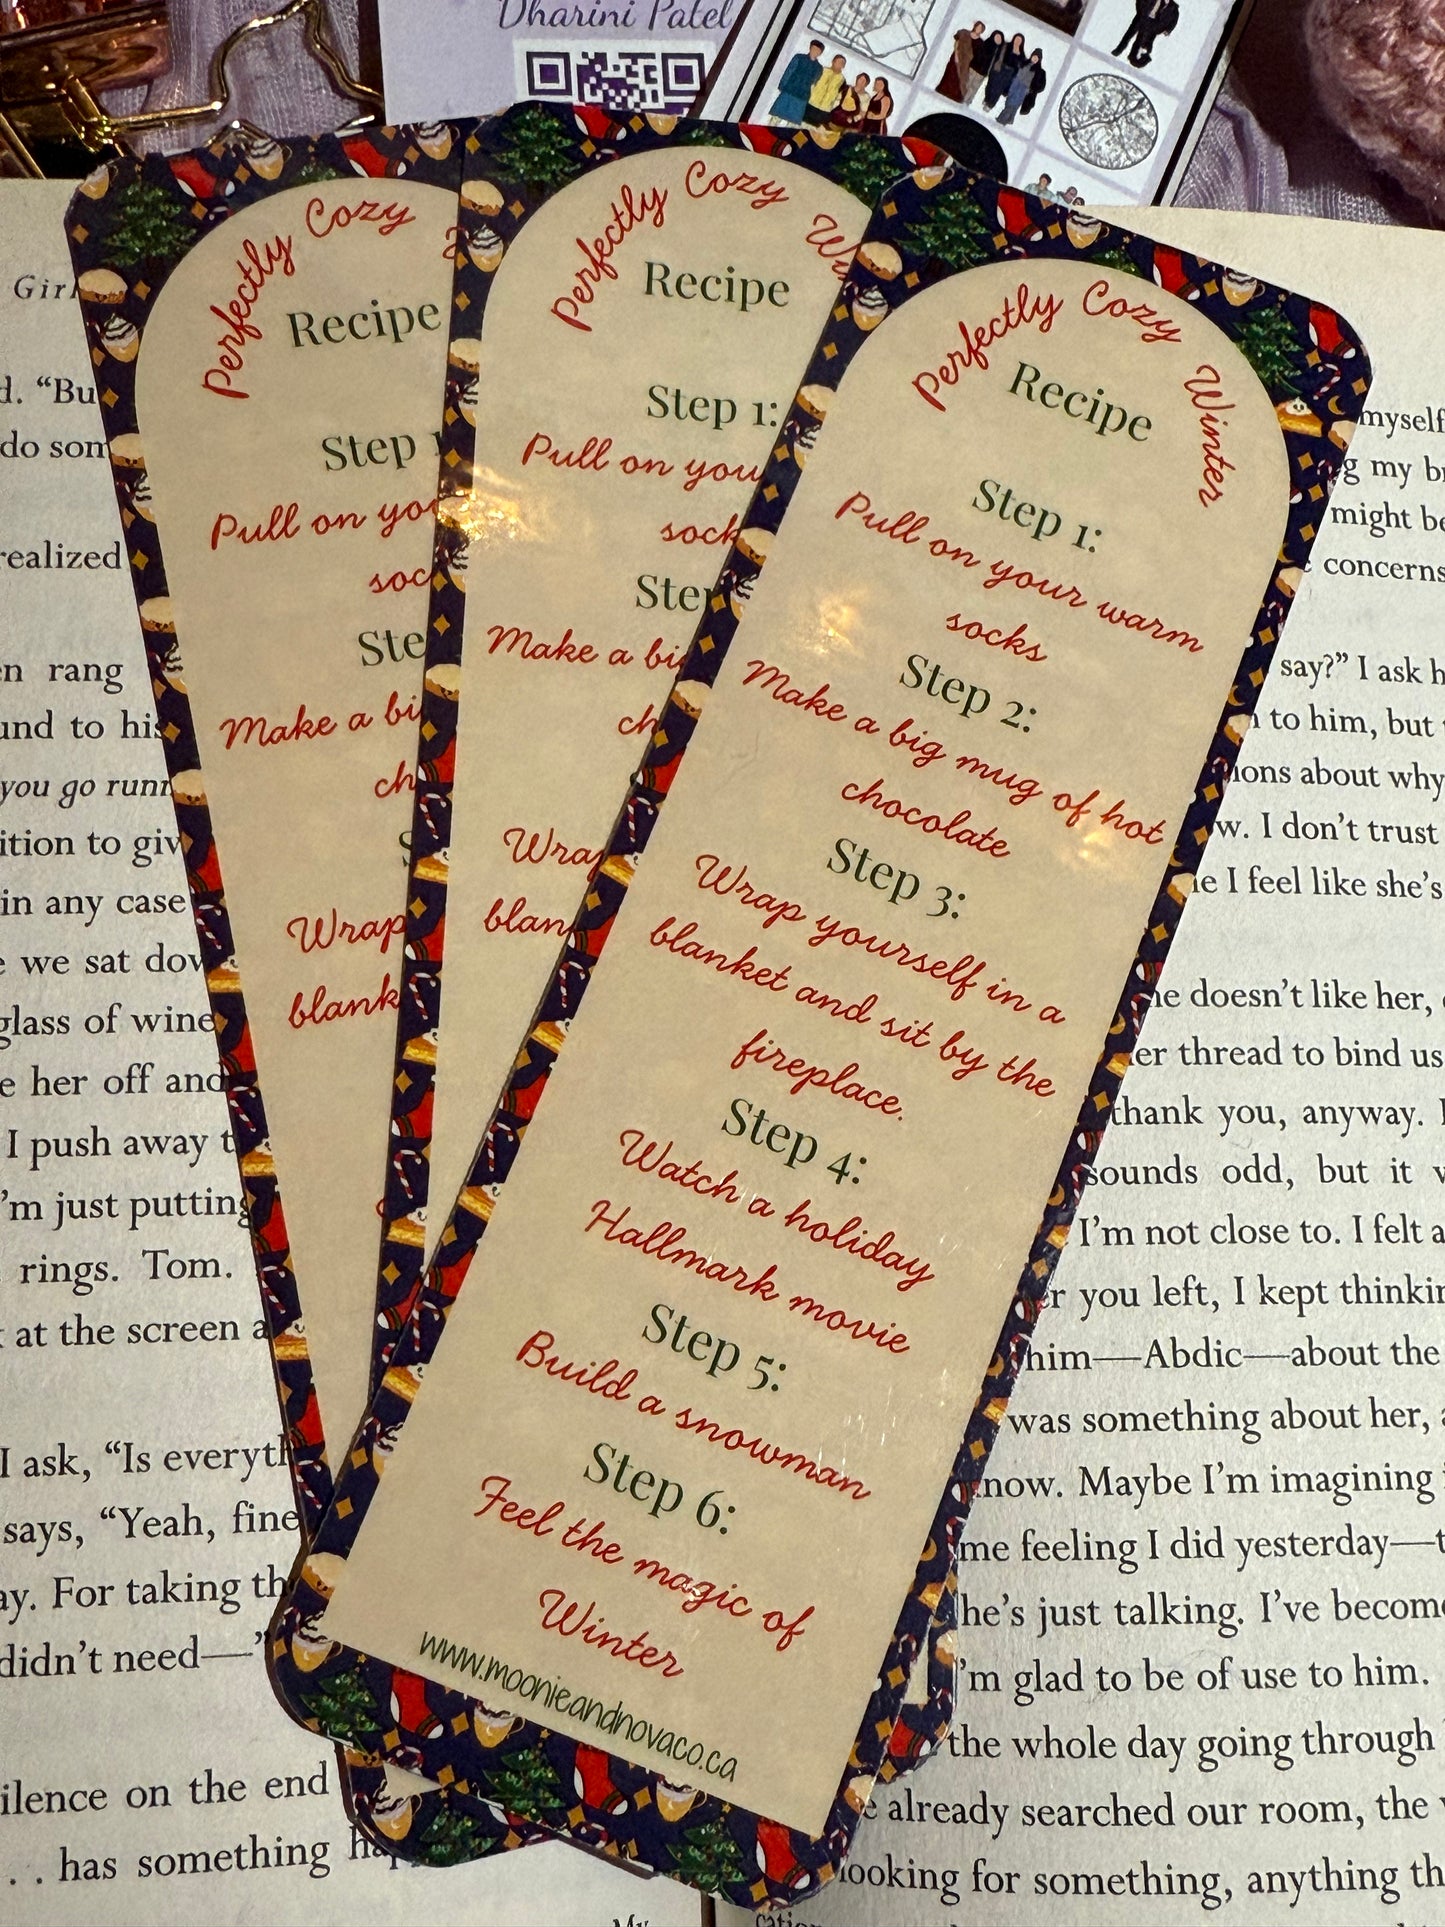 Dharini Patel
Perfectly Cozy
Recipe
Step 1
Pull on you
soc
Ste
Make a bi
ch
Wrap
blank
Perfectly Cozy Wi
Recipe
Step 1:
Pull on you
sock
Step
Make a bi
ch
Wrap
blan
Perfectly Cozy Winter
Recipe
Step 1:
Pull on your warm
socks
Step 2:
Make a big mug of hot
chocolate
Step 3:
Wrap yourself in a
blanket and sit by the
fireplace.
Step 4:
Watch a holiday
Hallmark movie
Step 5:
Build a snowman
Step 6:
Feel the magic of
Winter
www.moonieandnovaco.ca
Girl
d. “Bu
do som
realized
en rang
und to his
you go runn
ition to giv
in any case
e we sat dov
glass of wine
e her off and
I push away t
’m just putting
rings. Tom.
at the screen a
I ask, “Is everyth
says, “Yeah, fine
ay. For taking th
didn’t need—”
ilence on the end
. . has something hap
My
myself
g my br
might be
concerns
say?” I ask h
to him, but
ions about why
w. I don’t trust
e I feel like she’s
he doesn’t like her,
er thread to bind us
thank you, anyway.
sounds odd, but it
I’m not close to. I felt a
r you left, I kept thinkin
him—Abdic—about the
was something about her, a
now. Maybe I’m imagining
me feeling I did yesterday—t
he’s just talking. I’ve become
’m glad to be of use to him.
the whole day going through
e already searched our room, the
looking for something, anything th